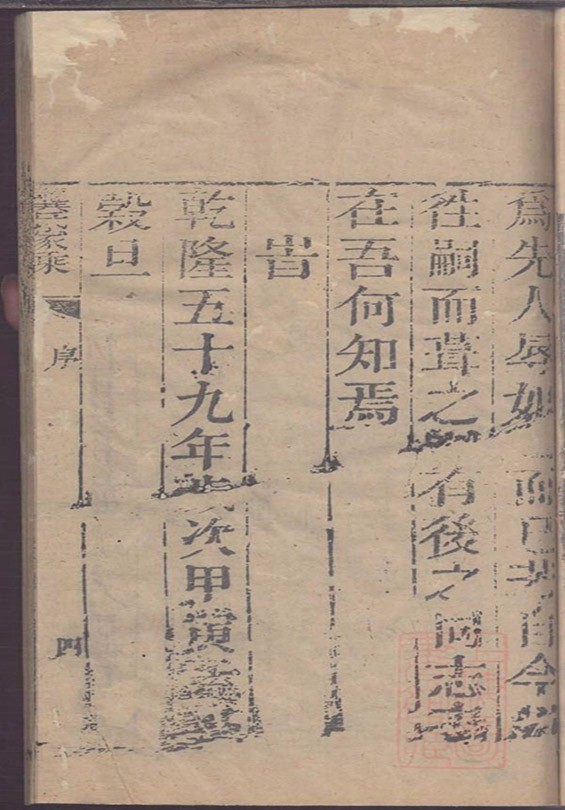 爲先人辱如而已若自今以
徃嗣而葺之有後之同志者
在吾何知焉
旹
乾隆五十九年歲次甲寅
穀旦
家乘
序
四